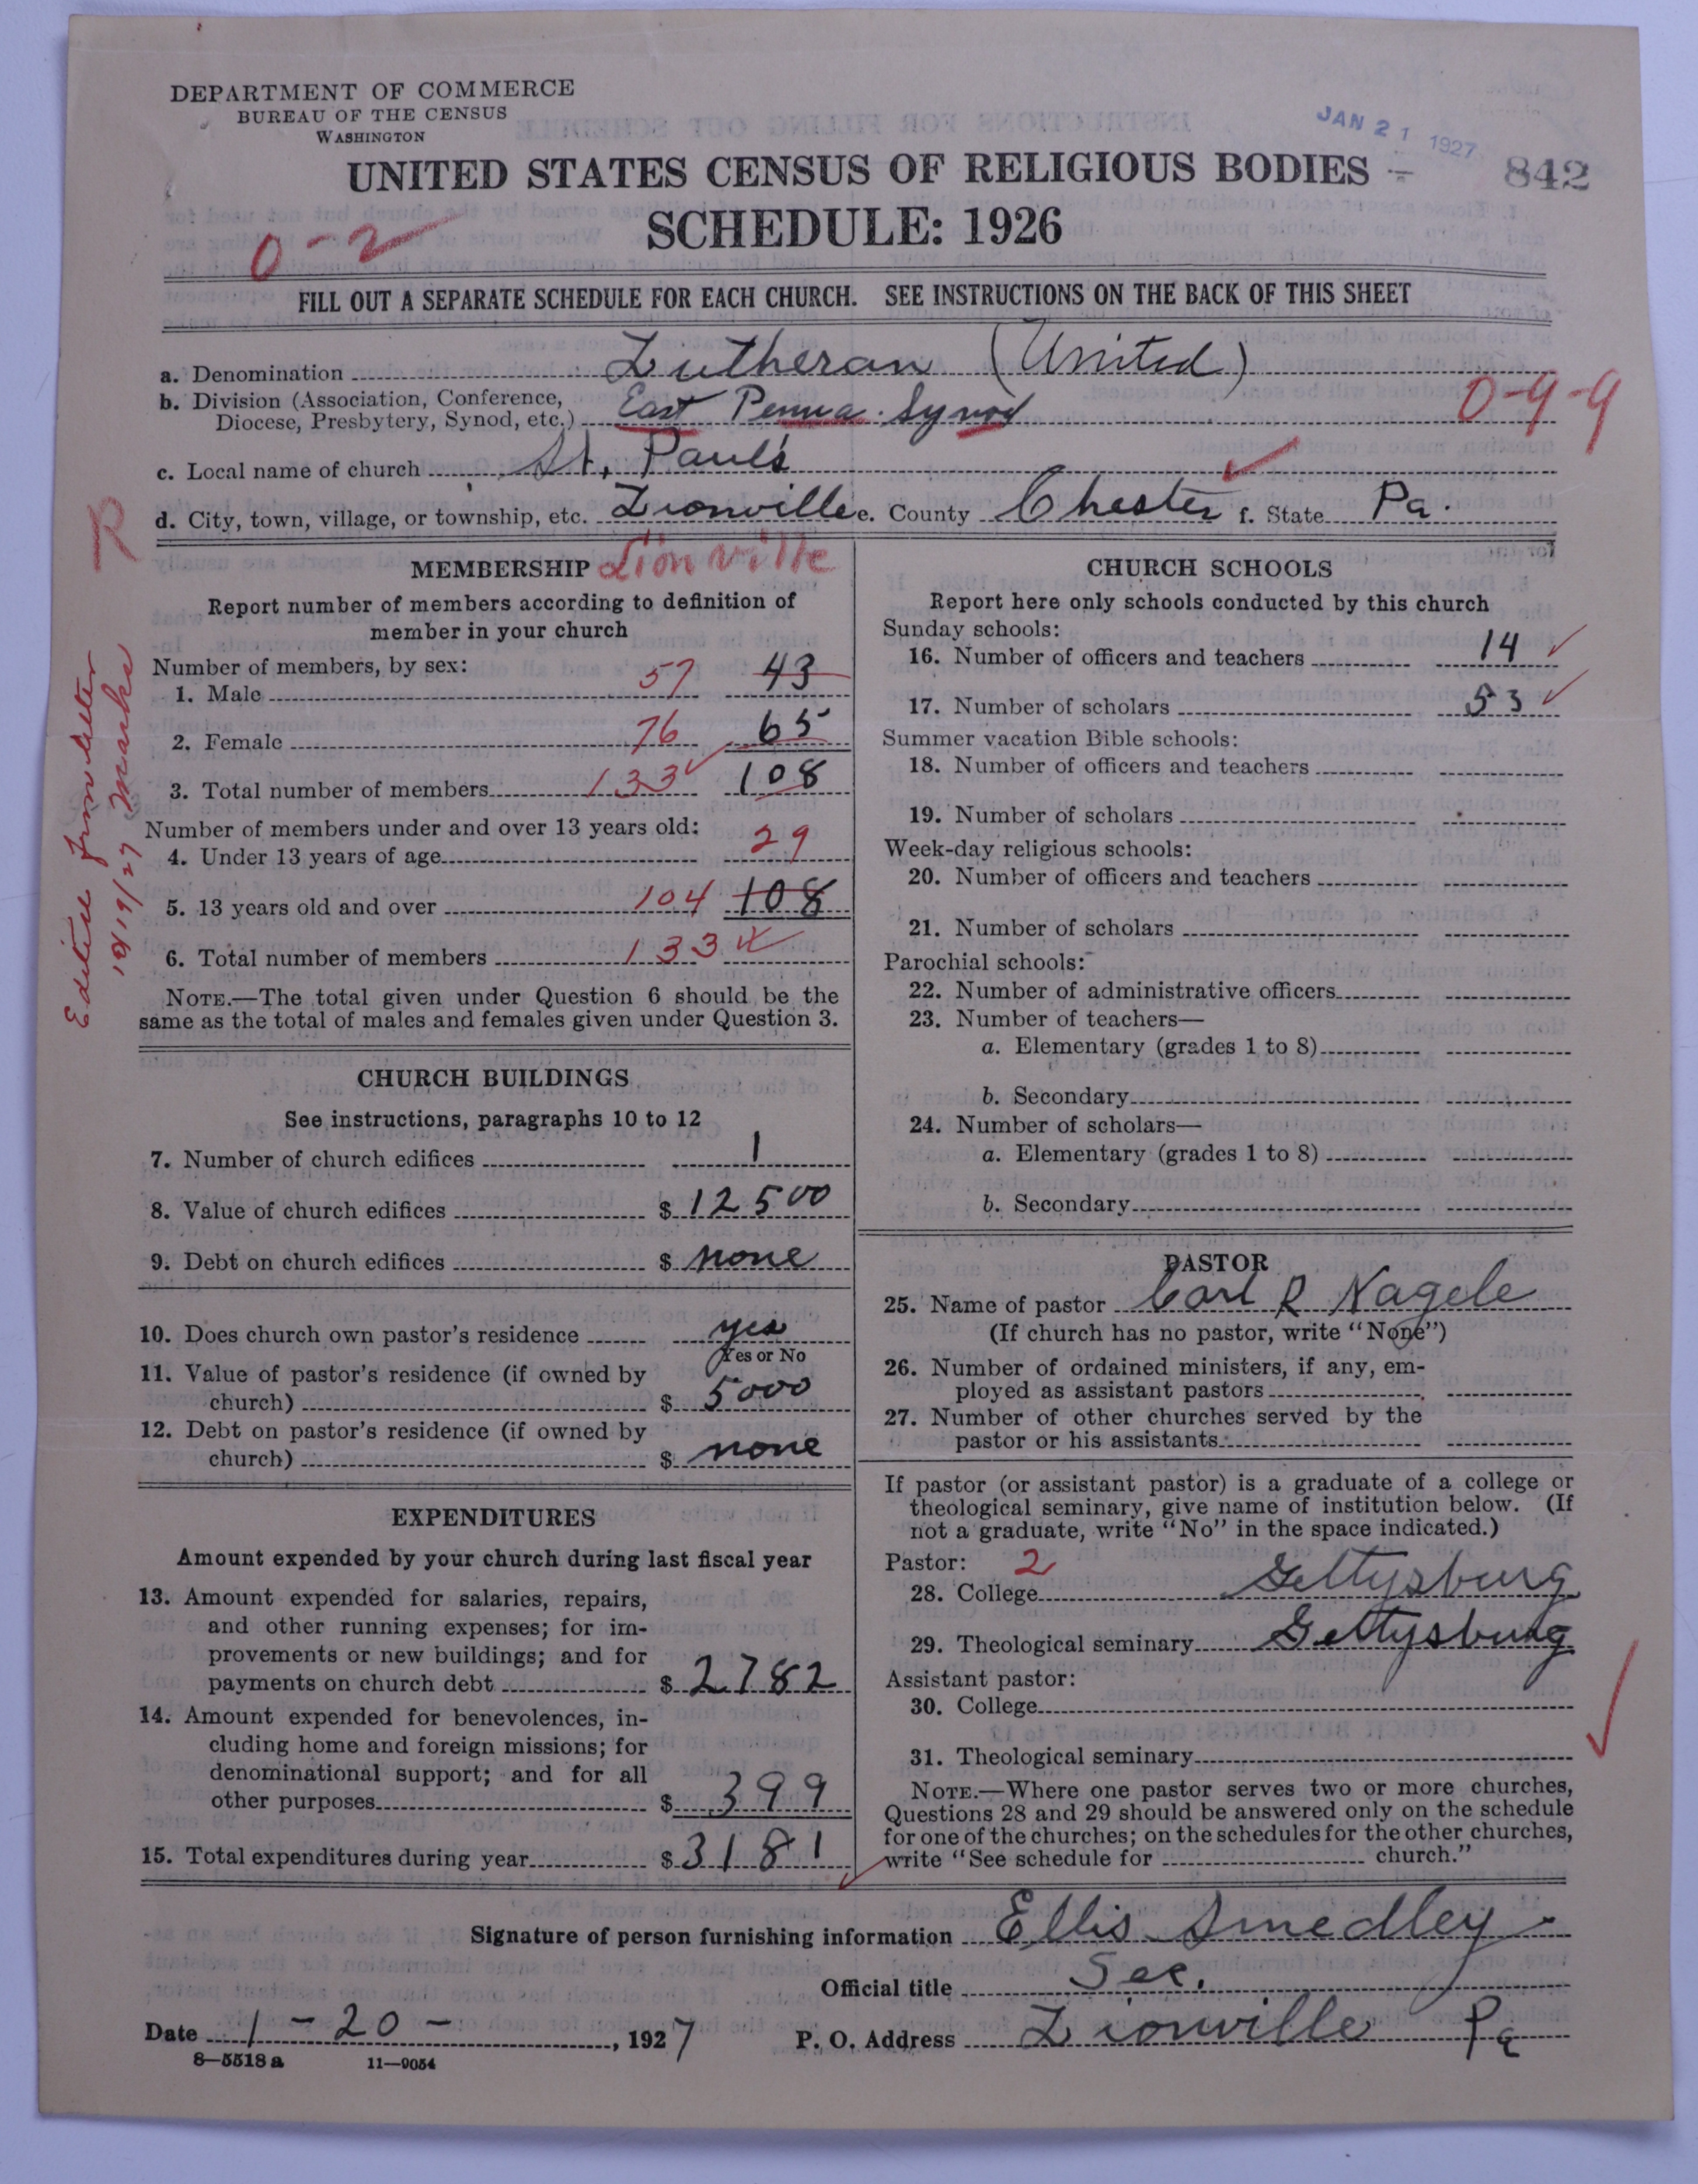 DEPARTMENT OF COMMERCE
BUREAU OF THE CENSUS
WASHINGTON
JAN 21 1927
842
UNITED STATES CENSUS OF RELIGIOUS BODIES
SCHEDULE: 1926
0-2
FILL OUT A SEPARATE SCHEDULE FOR EACH CHURCH. SEE INSTRUCTIONS ON THE BACK OF THIS SHEET
a. Denomination Lutheran (United)
b. Division (Association, Conference,
Diocese, Presbytery, Synod, etc.) East Penna. Synod 0-9-9
c. Local name of church St. Paul's
d. City, town, village, or township, etc. Lionville e. County Chester f. State Pa.
R
Edited from letter
10/19/27 Marks
MEMBERSHIP Lionville
Report number of members according to definition of
member in your church
Number of members, by sex:
1. Male 57 43
2. Female 76 65
3. Total number of members 133 108
Number of members under and over 13 years old:
4. Under 13 years of age 29
5. 13 years old and over 104 108
6. Total number of members 133
NOTE.—The total given under Question 6 should be the
same as the total of males and females given under Question 3.
CHURCH BUILDINGS
See instructions, paragraphs 10 to 12
7. Number of church edifices 1
8. Value of church edifices $ 12500
9. Debt on church edifices $ none
10. Does church own pastor's residence yes
Yes or No
11. Value of pastor's residence (if owned by
church) $ 5000
12. Debt on pastor's residence (if owned by
church) $ none
EXPENDITURES
Amount expended by your church during last fiscal year
13. Amount expended for salaries, repairs,
and other running expenses; for im-
provements or new buildings; and for
payments on church debt $ 2782
14. Amount expended for benevolences, in-
cluding home and foreign missions; for
denominational support; and for all
other purposes $ 399
15. Total expenditures during year $ 3181
CHURCH SCHOOLS
Report here only schools conducted by this church
Sunday schools:
16. Number of officers and teachers 14
17. Number of scholars 53
Summer vacation Bible schools:
18. Number of officers and teachers
19. Number of scholars
Week-day religious schools:
20. Number of officers and teachers
21. Number of scholars
Parochial schools:
22. Number of administrative officers
23. Number of teachers—
a. Elementary (grades 1 to 8)
b. Secondary
24. Number of scholars—
a. Elementary (grades 1 to 8)
b. Secondary
PASTOR
25. Name of pastor Carl R Nagele
(If church has no pastor, write "None")
26. Number of ordained ministers, if any, em-
ployed as assistant pastors
27. Number of other churches served by the
pastor or his assistants
If pastor (or assistant pastor) is a graduate of a college or
theological seminary, give name of institution below. (If
not a graduate, write "No" in the space indicated.)
Pastor: 2
28. College Gettysburg
29. Theological seminary Gettysburg
Assistant pastor:
30. College
31. Theological seminary
NOTE.—Where one pastor serves two or more churches,
Questions 28 and 29 should be answered only on the schedule
for one of the churches; on the schedules for the other churches,
write "See schedule for church."
Signature of person furnishing information Ellis Smedley
Official title Sec.
Date 1-20-, 1927 P. O. Address Lionville Pa
8-5518 a 11-9054